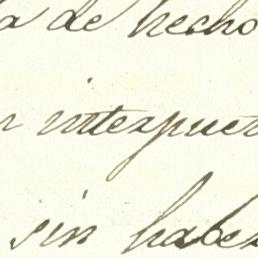 a de hecho
n interpuer
sin haber